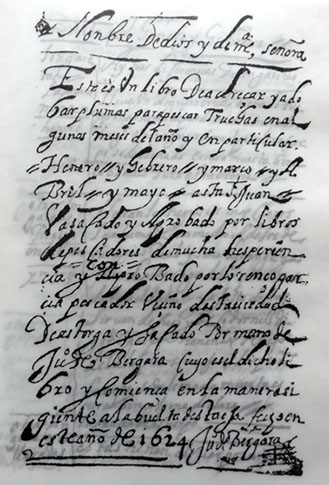 En Nonbre De dios y de nra señora
Este es Un libro De adereçar y ado
bar plumas para pescar Truchas en al
gunas meses del año y en particular
Henero // y febrero // y março // y A
Bril // y mayo // asta s Juan
Va sacado y Aprobado por libros
de pescadores de mucha hesperien
cia y con Apro Bado por lorenço gar
cia pescador Veçino desta ciudad
De astorga y sacado Por mano de
Juo de Bergara Cuyo es el dicho li
bro y comiença en la manera si
guiente a la buelta desta oja fecho en
este año de 1624 Juo de Bergara